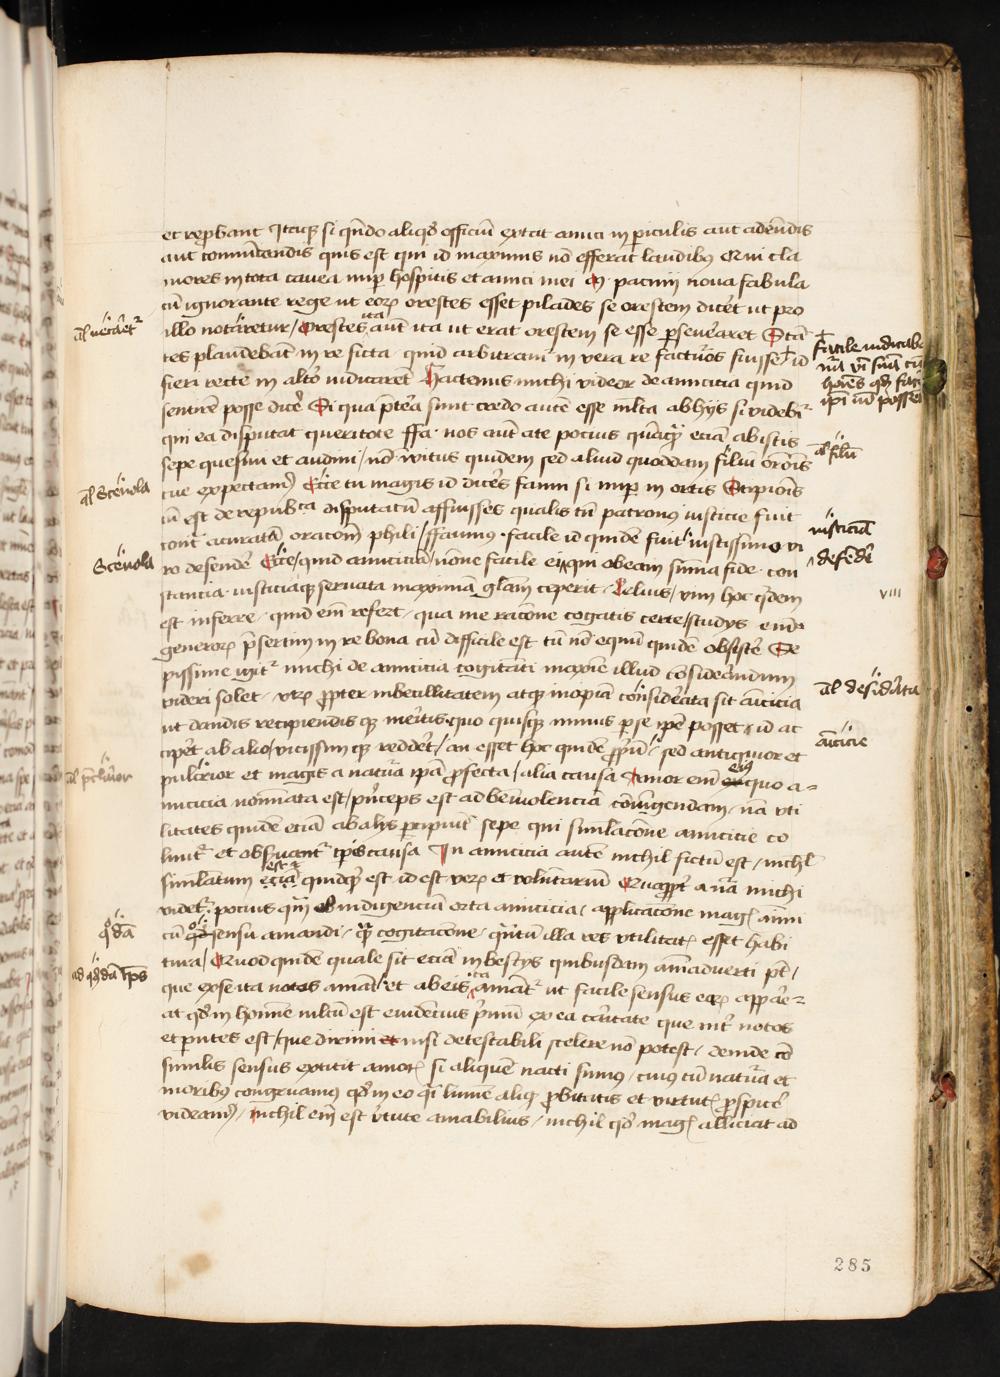 et reprobant Itaque si quando aliquod officium extitit amici in periculis aut adeundis
aut communicandis quis est qui id maximis non efferat laudibus Qui cla
mores in tota cavea nuper hospitis et amici mei M. pacuvii nova fabula
cum ignorante rege uter eorum orestes esset pilades se orestem diceret ut pro
illo necaretur / Orestes autem ita ut erat orestem se esse perseveraret Stan
tes plaudebant in re ficta quid arbitramur in vera re facturos fuisse id
fieri recte in altero iudicarent Hactenus michi videor de amicicia quid
sentirem posse dicere Si qua preterea sunt credo autem esse multa ab hiis si videbitur
qui ea disputant queritote ffa. nos autem a te pocius quamquam eciam ab istis
sepe quesivi et audivi / non invitus quidem sed aliud quoddam filum oracionis
tue expectamus Sce tu magis id diceres fanni si nuper in ortis Scipionis
cum est de republica disputatum affuisses qualis tum patronus iusticie fuit
contra accuratam oracionem phili / ffannius. facile id quidem fuit iustissimo vi
ro defendere Sce / quid amiciciam / nonne facile ei qui ob eam summa fide con
stancia iusticiaque servata maximam gloriam ceperit / Lelius / vim hoc quidem
est inferre quid enim refert qua me racione cogatis certe / studiis enim
generorum presertim in re bona cum difficile est tum non equum quidem obsistere Se
pissime igitur michi de amicicia cogitanti maxime illud considerandum
videri solet utrum propter imbecillitatem atque inopiam considerata sit amicicia
ut dandis recipiendisque meritis quo quisque minus per se ipse posset id ac
ciperet ab alio / vicissimque redderet / an esset hoc quidem proprium / sed antiquior et
pulcrior et magis a natura ipsa profecta / alia causa Amor enim ex quo a=
micicia nominata est / princeps est ad benivolenciam coniungendam nam uti
litates quidem eciam ab aliis percipiuntur sepe qui simulacione amicicie co
luntur et observantur temporis causa In amicicia autem nichil fictum est / nichil
simulatum et quidquid est id est verum et voluntarium Quapropter a natura michi
videtur pocius quam ab indigencia orta amicicia / applicacione magis animi
cum quodam sensu amandi / quam cogitacione / quantum illa res utilitatis esset habi
tura / Quod quidem quale sit eciam in bestiis quibusdam animadverti potest /
que ex se ita natos amant et ab eis ita amantur ut facile sensus earum appare=
at quod in homine multum est evidencius primum ex ea caritate que inter natos
et parentes est / que dirimi nisi detestabili scelere non potest / deinde cum
similis sensus extitit amoris si aliquem nacti sumus / cuius cum natura et
moribus congruamus quod in eo quasi lumen aliquod probitatis et virtutis perspicere
videamur / nichil enim est virtute amabilius / nichil quod magis alliciat ad
al Scevola
Scevola
quodam
facile iudicabat
al filum
iusticiam
defendere
viii
al desiderata
amicicie
285